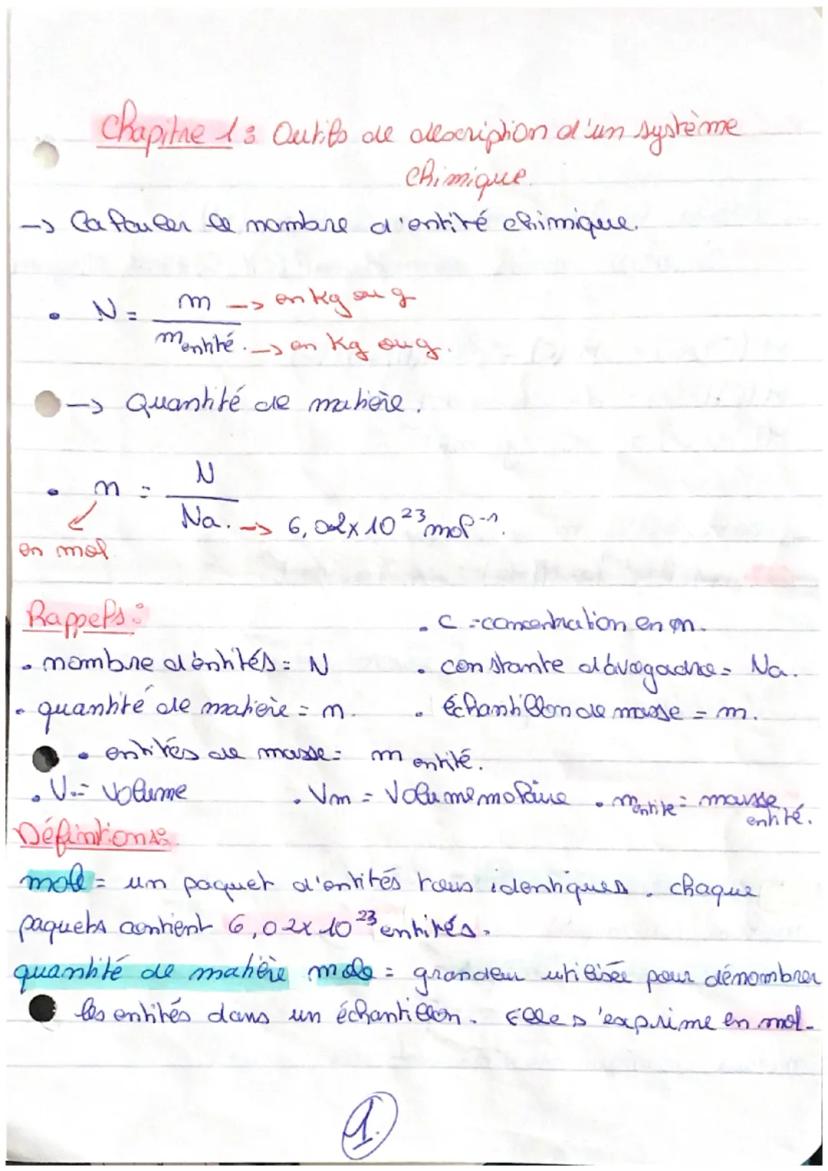 Chapitre 1 : Outils de description d'un système
chimique.
→ Calculer le nombre d'entité chimique.
• N = m / m entité.
→ en kg ou g
→ en kg ou g.
→ Quantité de matière.
• n = N / Na. → 6,02 x 10²³ mol⁻¹.
en mol
Rappels :
• C = concentration en m.
• nombre d'entités = N
• constante d'avogadro = Na.
• quantité de matière = n.
• échantillon de masse = m.
• entités de masse = m entité.
• V = Volume
• Vm = Volume molaire
• m entité = masse
entité.
Définitions
mole = un paquet d'entités tous identiques. chaque
paquets contient 6,02 x 10²³ entités.
quantité de matière mole = grandeur utilisée pour dénombrer
les entités dans un échantillon. Elle s'exprime en mol.
1.